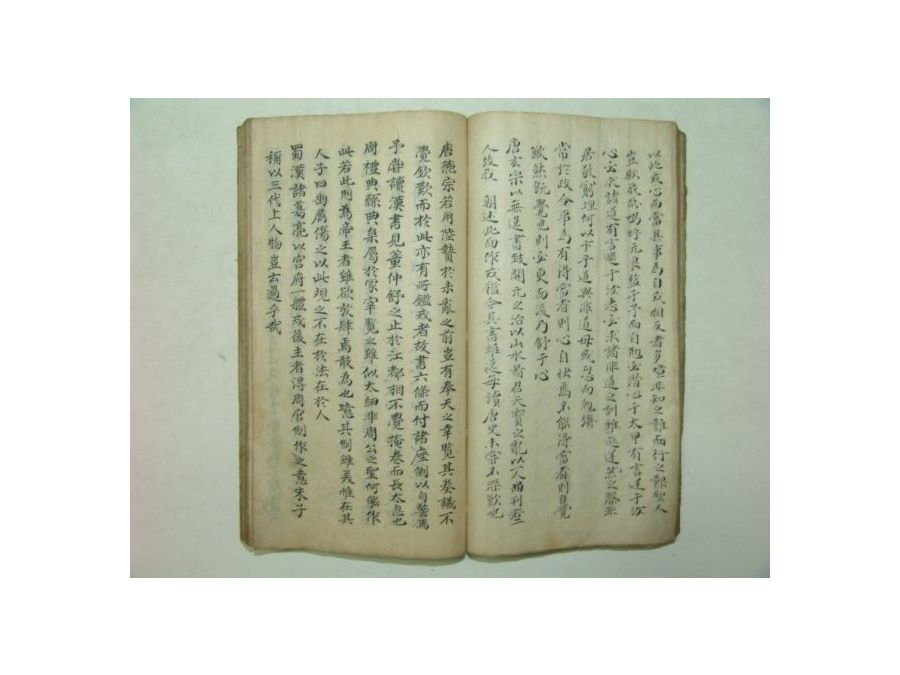 以此戒心而當其事為自戒相反者多噫非知之難而行之艱聖人
豈欺我哉嗚呼元良踐予言而自勉必潛心于太甲有言逆于汝
心必求諸道有言遜于汝志必求諸非道之訓雖造遽然之際
居敬窮理何以乎予道與非道毋或忽而勉旃
常於政令事為有得當者則心自快焉不能得當者則自覺
歉然既覺也則必更而後乃舒于心
唐玄宗以無逸書致開元之治以山水啚召天寶之亂以一人而判
人故我 朝述此而作戒鑑今其書雖邈每讀唐史未嘗不深歎也
唐德宗若用陸贄於未亂之前豈有奉天之幸覽其奏議不
覺欽歎而於此亦有所鑑戒者故書六條而付諸座側以自警焉
予嘗讀漢書見董仲舒之止於江都相不覺掩卷而長太息也
周禮典絲典枲屬於冢宰覽之雖似太細非周公之聖何能作
此若此則為帝王者雖欲放肆焉敢為也噫其制雖美惟在其
人子曰幽厲傷之以此觀之不在於法在於人
蜀漢諸葛亮以宮府一體戒後主者得周官制作之意朱子
稱以三代上人物豈云過乎哉